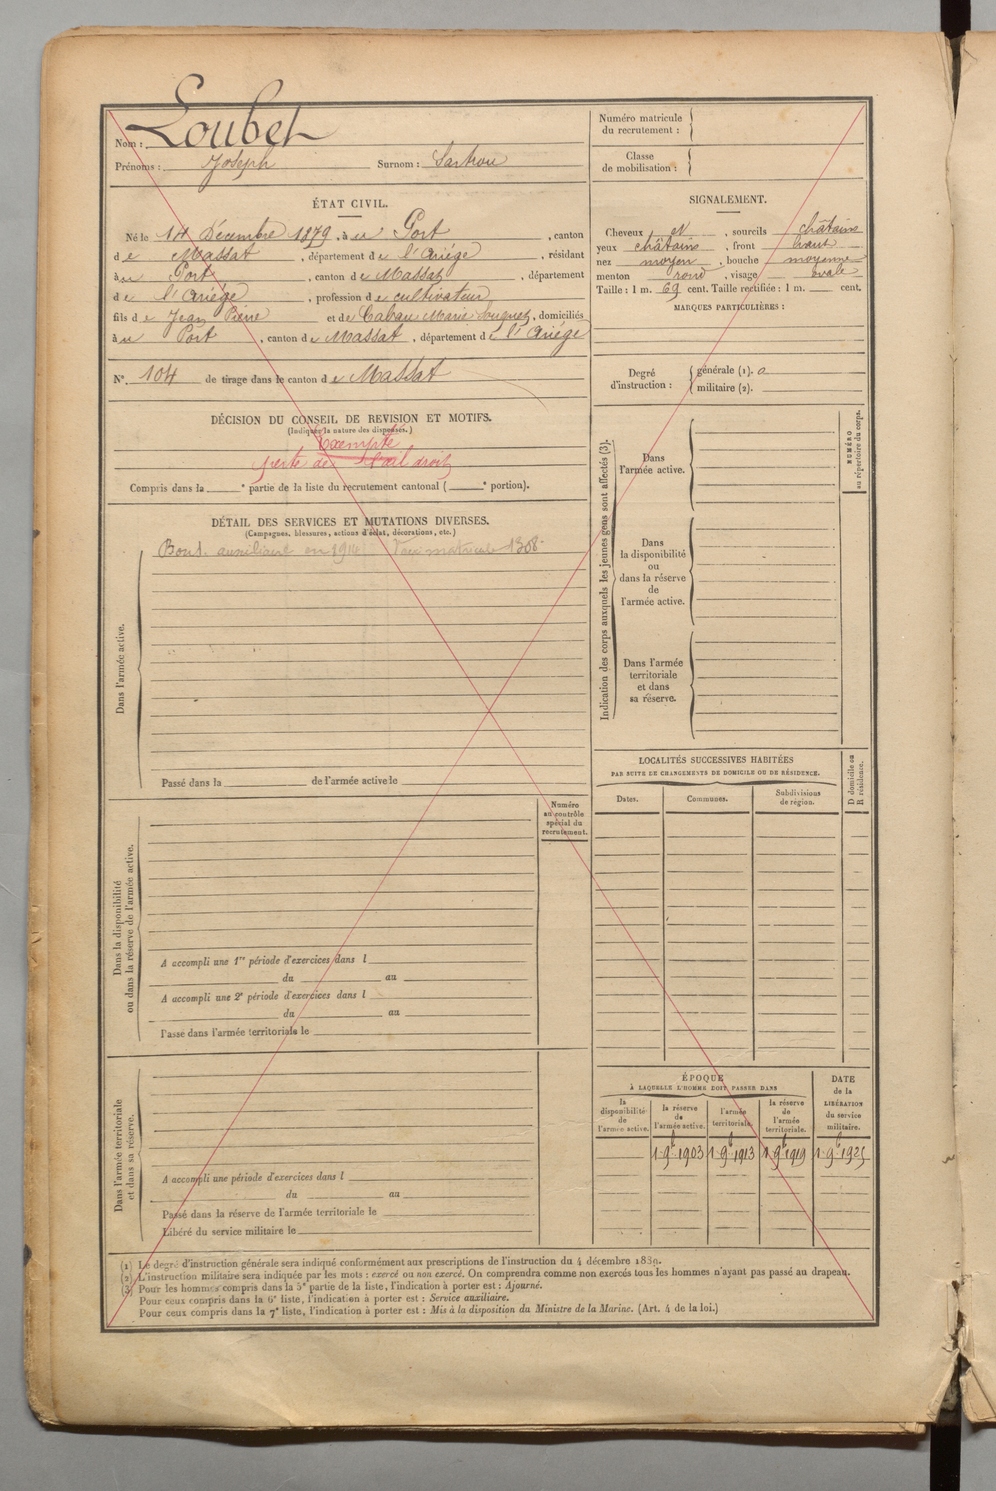 Nom : Loubet
Prénoms : Joseph Surnom :
ÉTAT CIVIL.
Né le 14 Décembre 1879, à u Port, canton
de Massat, département de l'Ariége, résidant
à u Port, canton de Massat, département
de l'Ariége, profession de cultivateur
fils de Jean Pierre et de Cabau Marie, domiciliés
à u Port, canton de Massat, département de l'Ariége
N° 104 de tirage dans le canton de Massat
DÉCISION DU CONSEIL DE REVISION ET MOTIFS.
(Indiquer la nature des dispenses.)
Exempté
perte de l'œil droit
Compris dans la e partie de la liste du recrutement cantonal ( e portion).
DÉTAIL DES SERVICES ET MUTATIONS DIVERSES.
(Campagnes, blessures, actions d'éclat, décorations, etc.)
auxiliaire en 1914 Voir matricule 1308
Dans l'armée active.
Passé dans la de l'armée active le
Numéro
au contrôle
spécial du
recrutement.
Dans la disponibilité
ou dans la réserve de l'armée active.
A accompli une 1re période d'exercices dans l
du au
A accompli une 2e période d'exercices dans l
du au
Passé dans l'armée territoriale le
Dans l'armée territoriale
et dans sa réserve.
A accompli une période d'exercices dans l
du au
Passé dans la réserve de l'armée territoriale le
Libéré du service militaire le
Numéro matricule
du recrutement :
Classe
de mobilisation :
SIGNALEMENT.
Cheveux N, sourcils châtains
yeux châtains, front haut
nez moyen, bouche moyenne
menton rond, visage ovale
Taille : 1 m. 69 cent. Taille rectifiée : 1 m. cent.
MARQUES PARTICULIÈRES :
Degré
d'instruction :
générale (1). 0
militaire (2).
Indication des corps auxquels les jeunes gens sont affectés (3).
Dans
l'armée active.
Dans
la disponibilité
ou
dans la réserve
de
l'armée active.
Dans l'armée
territoriale
et dans
sa réserve.
NUMÉRO
au répertoire du corps.
LOCALITÉS SUCCESSIVES HABITÉES
PAR SUITE DE CHANGEMENTS DE DOMICILE OU DE RÉSIDENCE.
Dates. Communes. Subdivisions
de région.
D domicile ou
R résidence.
ÉPOQUE
À LAQUELLE L'HOMME DOIT PASSER DANS
la
disponibilité
de
l'armée active.
la réserve
de
l'armée active.
l'armée
territoriale.
la réserve
de
l'armée
territoriale.
DATE
de la
LIBÉRATION
du service
militaire.
1 9b 1903 1 9b 1913 1 9b 1919 1 9b 1925
(1) Le degré d'instruction générale sera indiqué conformément aux prescriptions de l'instruction du 4 décembre 1889.
(2) L'instruction militaire sera indiquée par les mots : exercé ou non exercé. On comprendra comme non exercés tous les hommes n'ayant pas passé au drapeau.
(3) Pour les hommes compris dans la 5e partie de la liste, l'indication à porter est : Ajourné.
Pour ceux compris dans la 6e liste, l'indication à porter est : Service auxiliaire.
Pour ceux compris dans la 7e liste, l'indication à porter est : Mis à la disposition du Ministre de la Marine. (Art. 4 de la loi.)